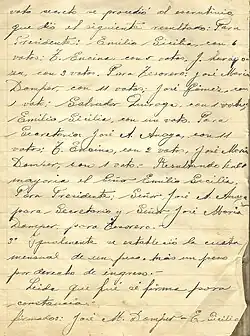 voto secreto se procedió al escrutinio
que dió el siguiente resultado: Para
Presidente; Emilio Sicilia, con 6
votos; E. Encina con votos, J.
con 2 votos. Para Tesorero: José María
Damper, con 11 votos; José Gimez, con
1 voto; Salvador Quiroga con 1 voto y
Emilio Sicilia con un voto. Para
Secretario José A. Anaga, con 11
votos; E. Encina, con 2 votos, José María
Damper, con 1 voto.- Resultando por
mayoría el Señor Emilio Sicilia
Para Presidente; Señor José A. Anaga
para Secretario y Señor José María
Damper, para Tesorero.-
3º Igualmente se estableció la cuota
mensual de un peso más un peso
por derecho de ingreso.-
Leída que fué se firma para
constancia.-
Firmados: José M. Damper - E. Sicilia